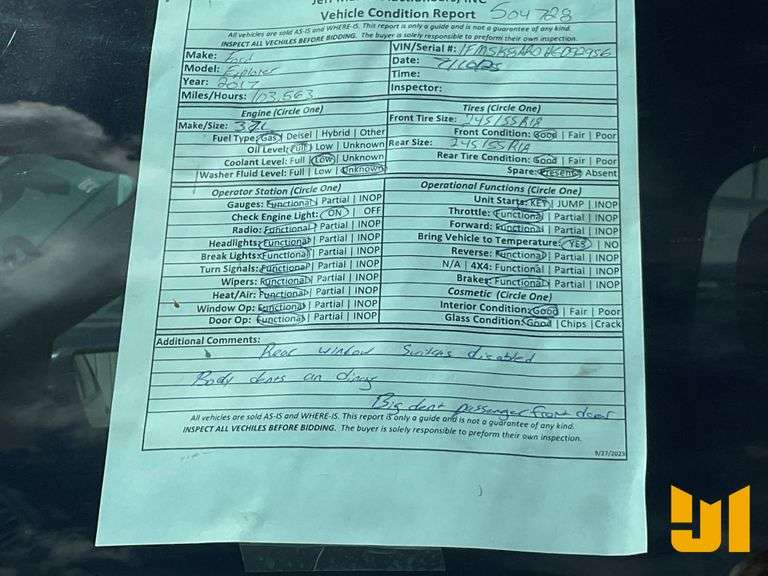 Vehicle Condition Report 504728
All vehicles are sold AS-IS and WHERE-IS. This report is only a guide and is not a guarantee of any kind.
INSPECT ALL VECHILES BEFORE BIDDING. The buyer is solely responsible to preform their own inspection.
Make: Ford
Model: Explorer
Year: 2017
Miles/Hours: 103,563
VIN/Serial #:
Date:
Time:
Inspector:
Engine (Circle One)
Make/Size: 3.7L
Fuel Type: Gas | Deisel | Hybrid | Other
Oil Level: Full | Low | Unknown
Coolant Level: Full | Low | Unknown
Washer Fluid Level: Full | Low | Unknown
Tires (Circle One)
Front Tire Size: 245/55R18
Front Condition: Good | Fair | Poor
Rear Size: 245/55R18
Rear Tire Condition: Good | Fair | Poor
Spare: Present | Absent
Operator Station (Circle One)
Gauges: Functional | Partial | INOP
Check Engine Light: ON | OFF
Radio: Functional | Partial | INOP
Headlights: Functional | Partial | INOP
Break Lights: Functional | Partial | INOP
Turn Signals: Functional | Partial | INOP
Wipers: Functional | Partial | INOP
Heat/Air: Functional | Partial | INOP
Window Op: Functional | Partial | INOP
Door Op: Functional | Partial | INOP
Operational Functions (Circle One)
Unit Starts: KEY | JUMP | INOP
Throttle: Functional | Partial | INOP
Forward: Functional | Partial | INOP
Bring Vehicle to Temperature: YES | NO
Reverse: Functional | Partial | INOP
N/A | 4X4: Functional | Partial | INOP
Brakes: Functional | Partial | INOP
Cosmetic (Circle One)
Interior Condition: Good | Fair | Poor
Glass Condition: Good | Chips | Crack
Additional Comments:
Rear window disabled
Body dents an dings
Big dent passenger front door
All vehicles are sold AS-IS and WHERE-IS. This report is only a guide and is not a guarantee of any kind.
INSPECT ALL VECHILES BEFORE BIDDING. The buyer is solely responsible to preform their own inspection.
9/27/2023